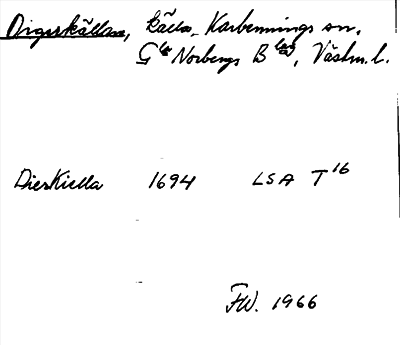 Digerkällan, källa, Karbennings sn,
Gla Norbergs Blag, Västm. l.
Dierkiella 1694 LSA T16
FW. 1966